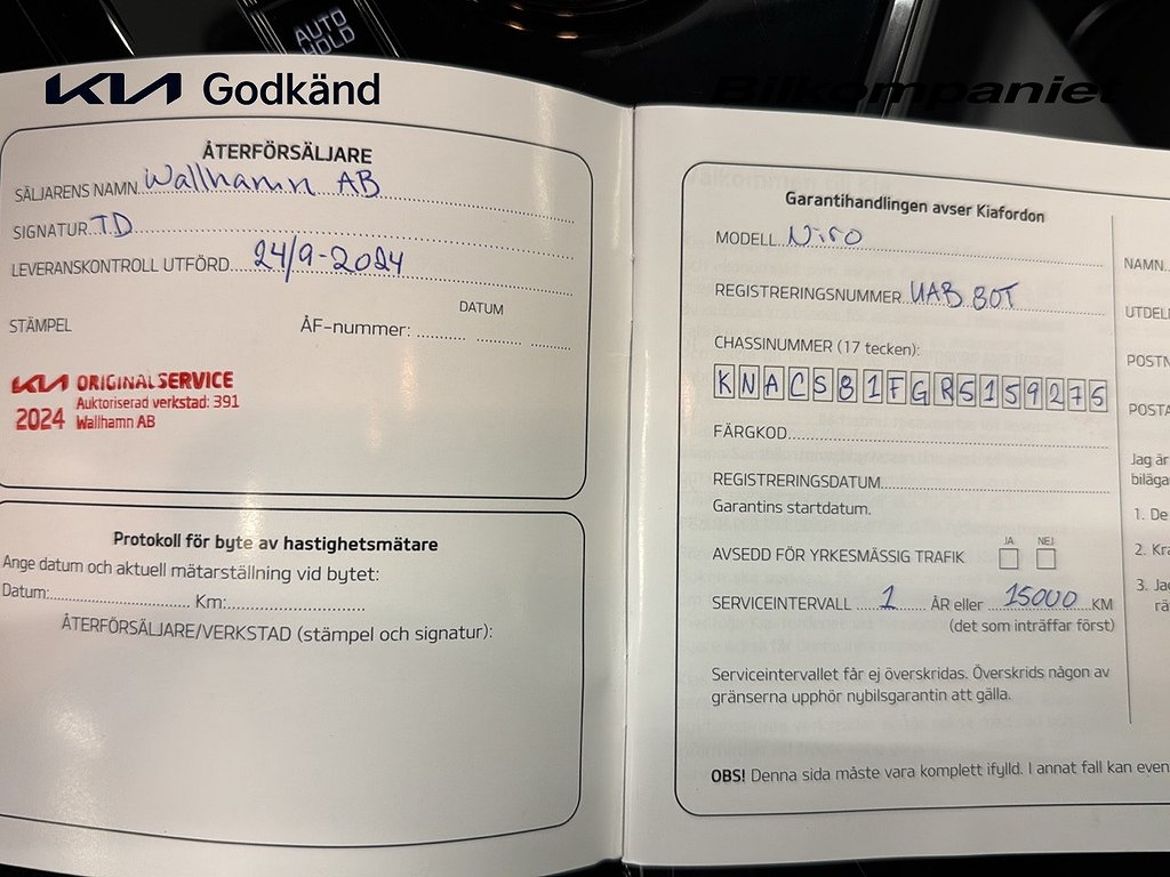 AUTO
HOLD
KIA Godkänd
Bilkompaniet
ÅTERFÖRSÄLJARE
SÄLJARENS NAMN Wallhamn AB
SIGNATUR TD
LEVERANSKONTROLL UTFÖRD 24/9-2024
DATUM
STÄMPEL
ÅF-nummer:
KIA ORIGINAL SERVICE
Auktoriserad verkstad: 391
2024 Wallhamn AB
Protokoll för byte av hastighetsmätare
Ange datum och aktuell mätarställning vid bytet:
Datum: Km:
ÅTERFÖRSÄLJARE/VERKSTAD (stämpel och signatur):
Garantihandlingen avser Kiafordon
MODELL Niro
REGISTRERINGSNUMMER UAB 80T
CHASSINUMMER (17 tecken):
KNACS81FGR5159275
FÄRGKOD
REGISTRERINGSDATUM
Garantins startdatum.
JA NEJ
AVSEDD FÖR YRKESMÄSSIG TRAFIK
SERVICEINTERVALL 1 ÅR eller 15000 KM
(det som inträffar först)
Serviceintervallet får ej överskridas. Överskrids någon av
gränserna upphör nybilsgarantin att gälla.
OBS! Denna sida måste vara komplett ifylld. I annat fall kan even
NAMN
UTDEL
POSTN
POSTA
Jag är
biläga
1. De
2. Kra
3. Ja
rä